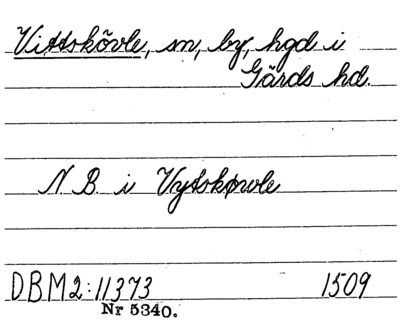 Vittskövle, sn, by, hgd i
Gärds hd.
N B. i Vytskøwle
DBM2:11373 1509
Nr 5340.